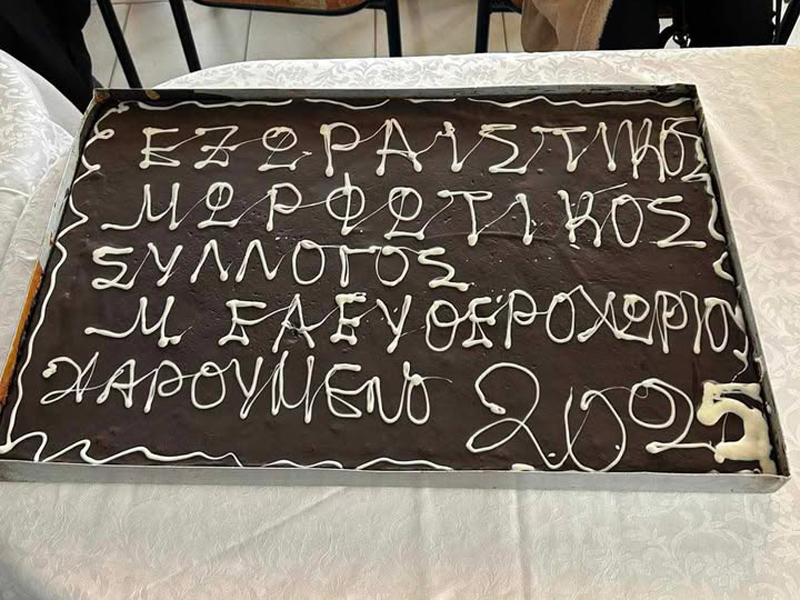 ΕΞΩΡΑΙΣΤΙΚΟΣ
ΜΩΡΦΩΤΙΚΟΣ
ΣΥΛΛΟΓΟΣ
Μ ΕΛΕΥΘΕΡΟΧΩΡΙΟΥ
ΧΑΡΟΥΜΕΝΟ 2025